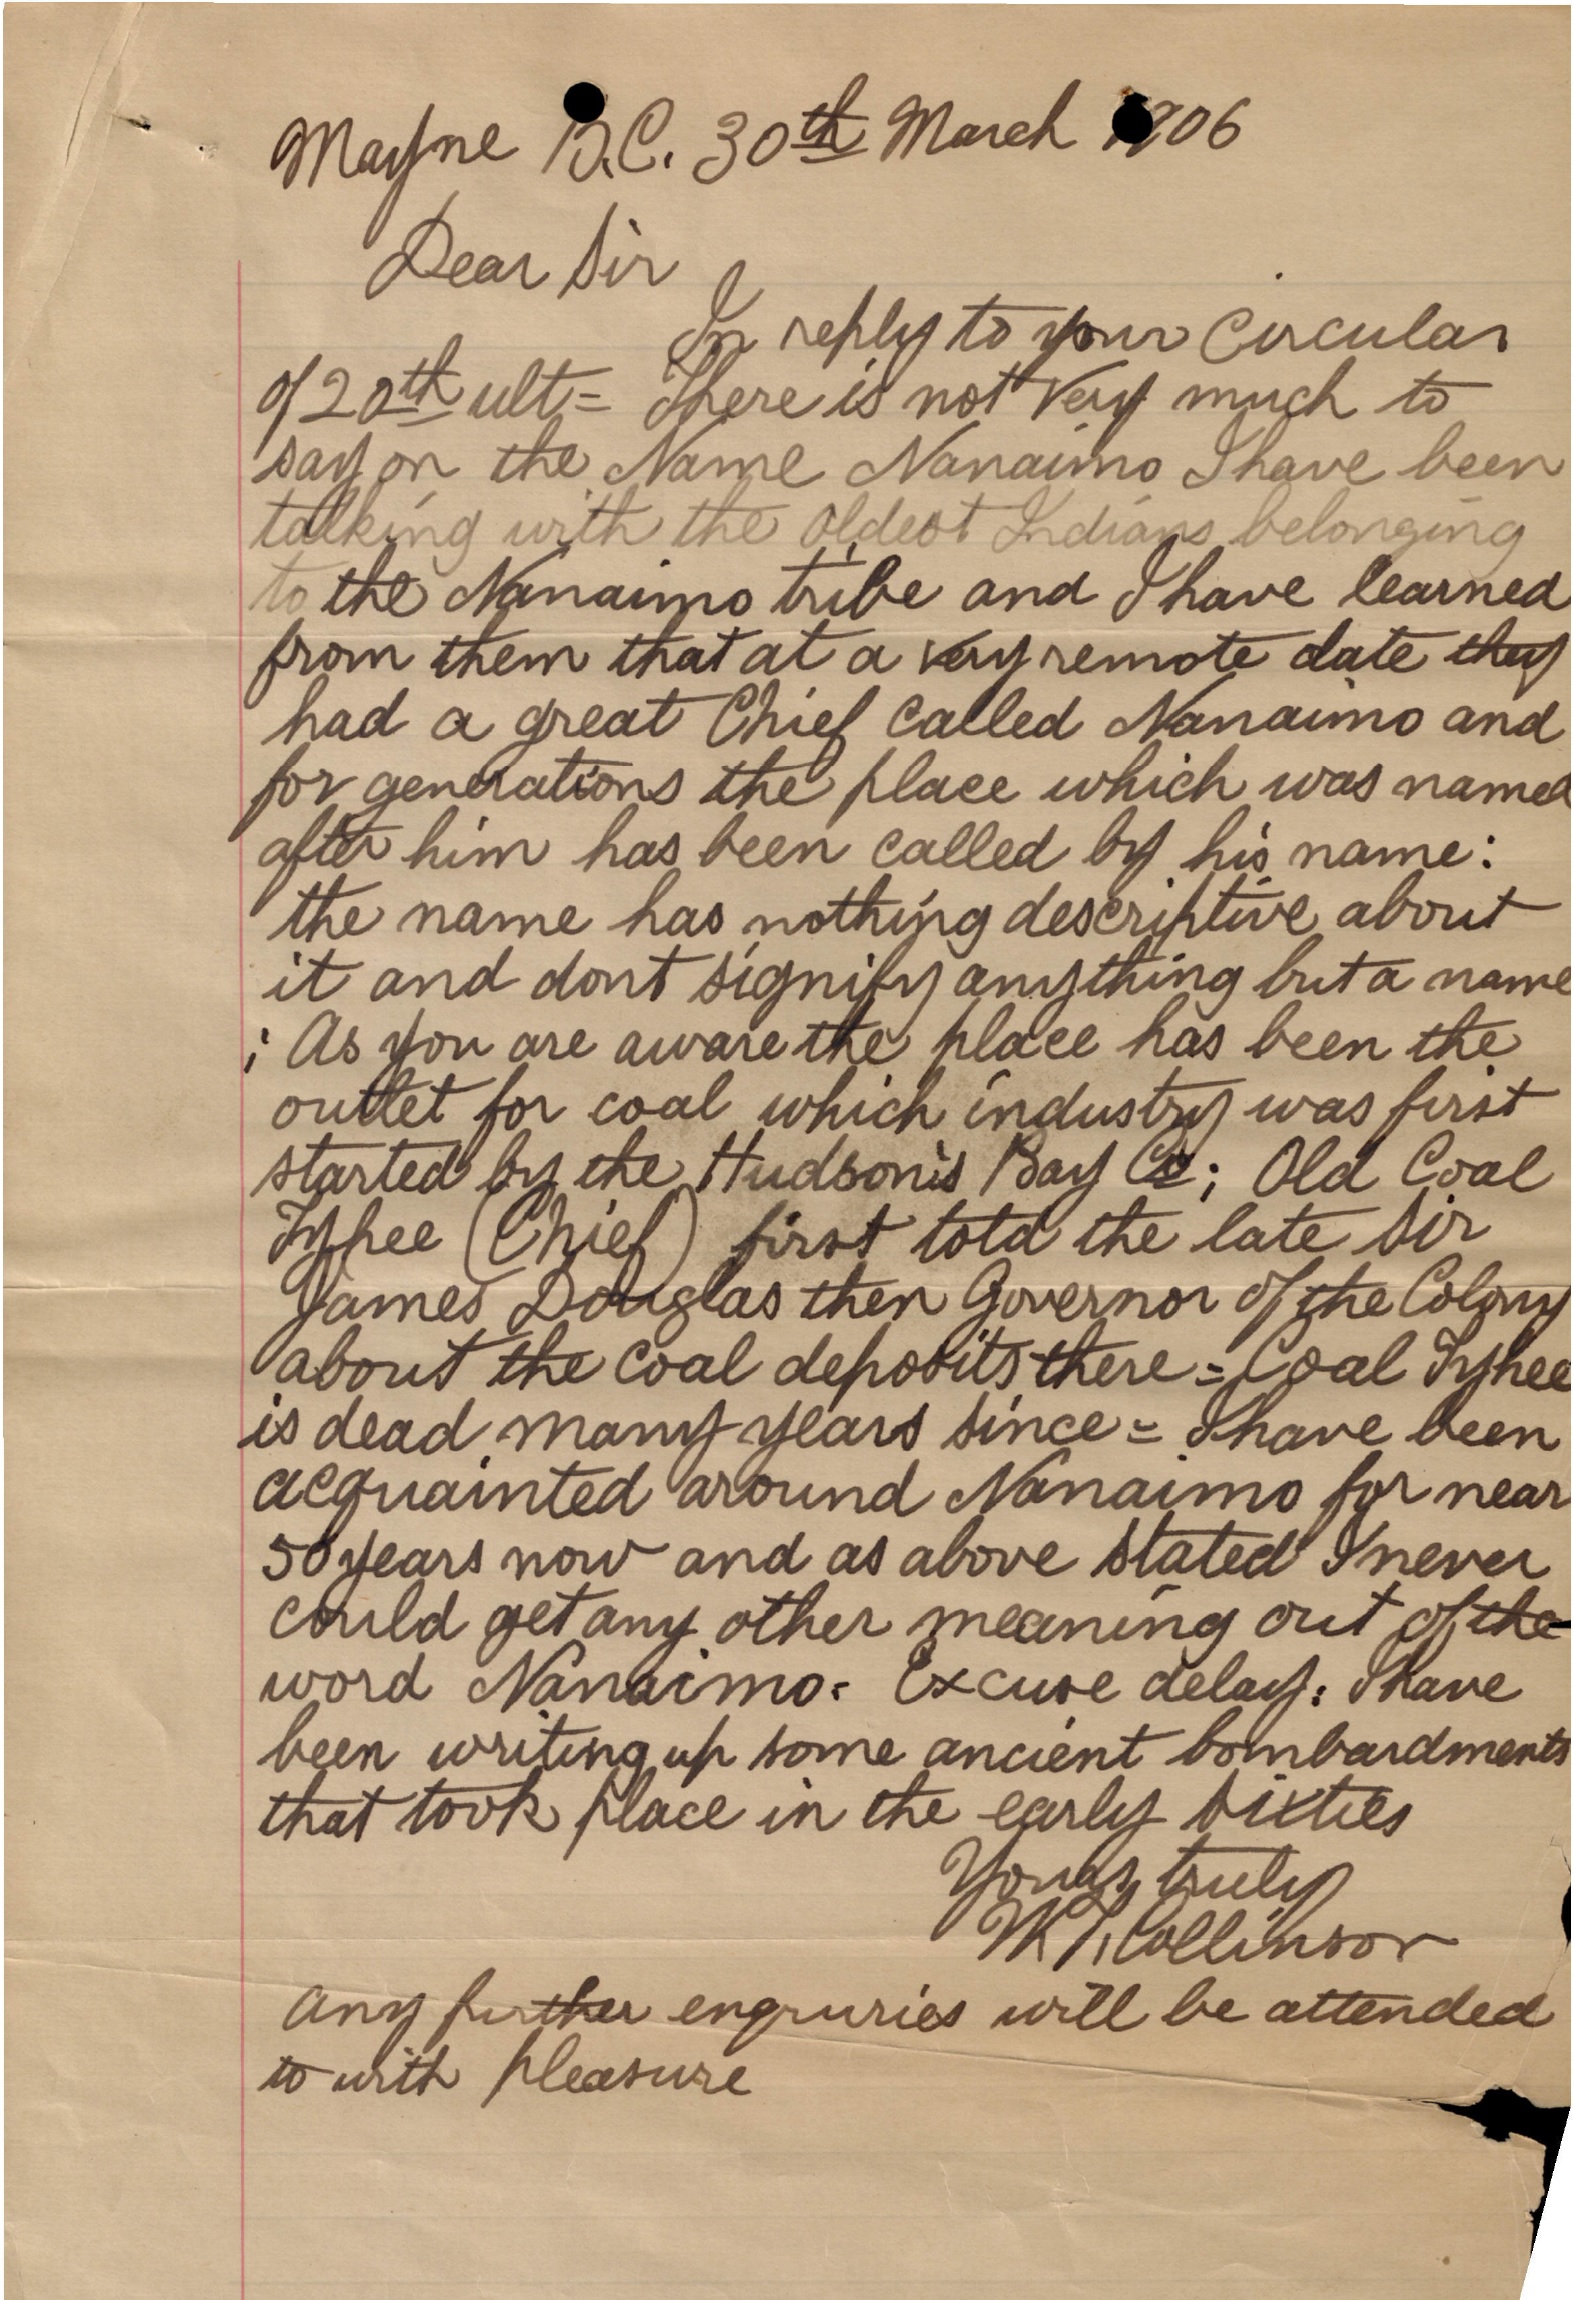 Mayne B.C. 30th March 1906
Dear Sir
In reply to your Circular
of 20th ult = There is not very much to
say on the Name Nanaimo I have been
talking with the oldest Indians belonging
to the Nanaimo tribe and I have learned
from them that at a very remote date they
had a great Chief called Nanaimo and
for generations the place which was named
after him has been called by his name:
the name has nothing descriptive about
it and dont signify anything but a name
; As you are aware the place has been the
outlet for coal which industry was first
started by the Hudson's Bay Co; Old Coal
Tyhee (Chief) first told the late Sir
James Douglas then Governor of the Colony
about the coal deposits there = Coal Tyhee
is dead many years since = I have been
acquainted around Nanaimo for near
50 years now and as above stated I never
could get any other meaning out of the
word Nanaimo. Excuse delay: I have
been writing up some ancient bombardments
that took place in the early sixties
Yours truly
W. T. Collinson
any further enquries will be attended
to with pleasure